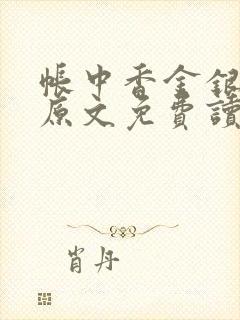 帳中香金銀
原文免費讀
肖丹